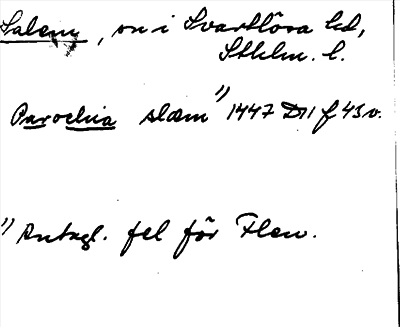 Salem, sn i Svartlösa hd,
Sthlm. l.
Parochia slæm 1) 1447 D11 f 43 v.
1) Antagl. fel för Flen.